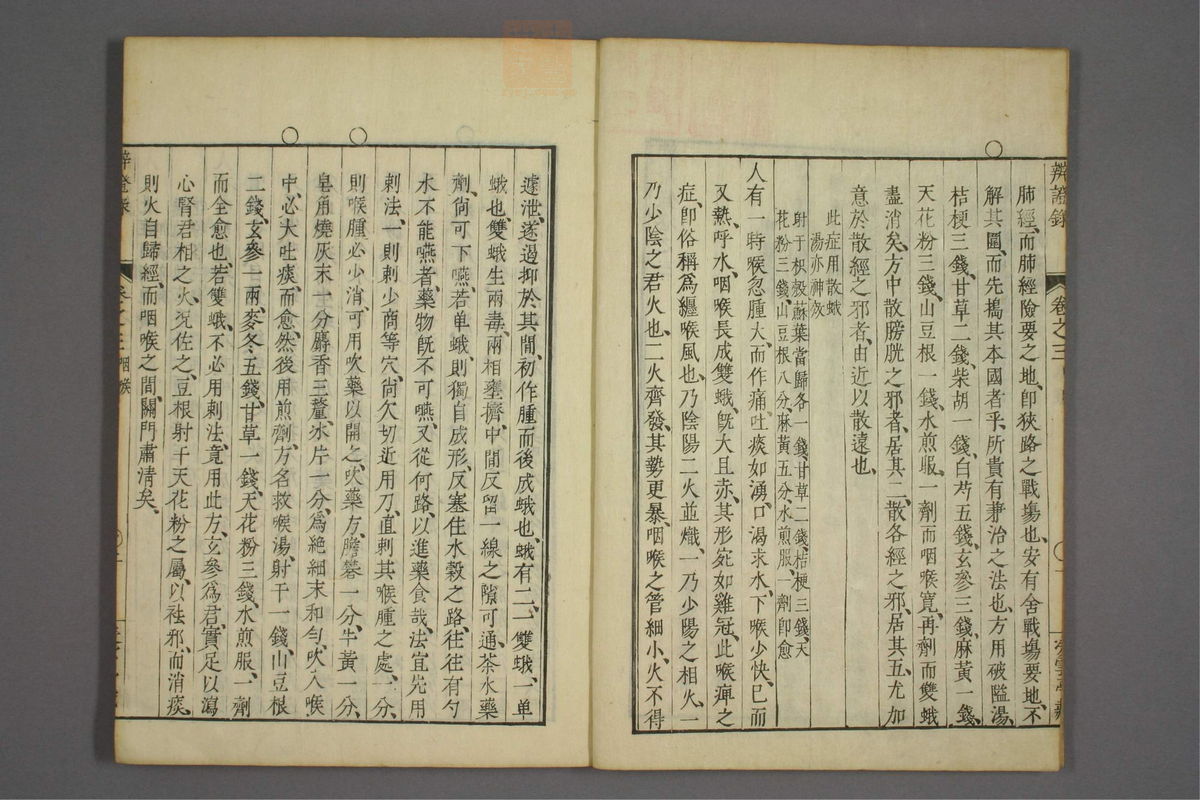 辨證錄 卷之三
肺經、而肺經險要之地、即狹路之戰塲也、安有舍戰塲要地、不
解其圍、而先搗其本國者乎、所貴有兼治之法也、方用破隘湯、
桔梗三錢、甘草二錢、柴胡一錢、白芍五錢、玄參三錢、麻黃一錢、
天花粉三錢、山豆根一錢、水煎服、一劑而咽喉寬、再劑而雙蛾
盡消矣、方中散膀胱之邪者、居其二、散各經之邪、居其五、尤加
意於散經之邪者、由近以散遠也、
此症用散蛾
湯亦神效
射干枳殼蘇葉當歸各一錢、甘草二錢、桔梗三錢、天
花粉三錢、山豆根八分、麻黃五分、水煎服、一劑即愈
人有一時喉忽腫大、而作痛、吐痰如湧、口渴求水、下喉少快、已而
又熱、呼水、咽喉長成雙蛾、既大且赤、其形宛如雞冠、此喉痺之
症、即俗稱爲纏喉風也、乃陰陽二火並熾、一乃少陽之相火、一
乃少陰之君火也、二火齊發、其勢更暴、咽喉之管細小、火不得
遽泄、遂遏抑於其間、初作腫而後成蛾也、蛾有二、一雙蛾、一单
蛾也、雙蛾生兩毒、兩相壅擠、中間反留一線之隙、可通茶水藥
劑、尙可下嚥、若单蛾、則獨自成形、反塞住水穀之路、往往有勺
水不能嚥者、藥物旣不可嚥、又從何路、以進藥食哉、法宜先用
刺法、一則刺少商等穴、尙欠切近、用刀、直刺其喉腫之處、一分、
則喉腫必少消、可用吹藥以開之、吹藥方、膽礬一分、牛黃一分、
皂角燒灰末一分、麝香三釐、冰片一分、爲絕細末、和勻、吹入喉
中、必大吐痰、而愈、然後用煎劑、方名救喉湯、射干一錢、山豆根
二錢、玄參一兩、麥冬五錢、甘草一錢、天花粉三錢、水煎服、一劑
而全愈也、若雙蛾、不必用刺法、竟用此方、玄參爲君、實足以瀉
心腎君相之火、况佐之、豆根射干天花粉之屬、以祛邪、而消痰、
則火自歸經、而咽喉之間、關門肅淸矣、
卷之三 咽喉